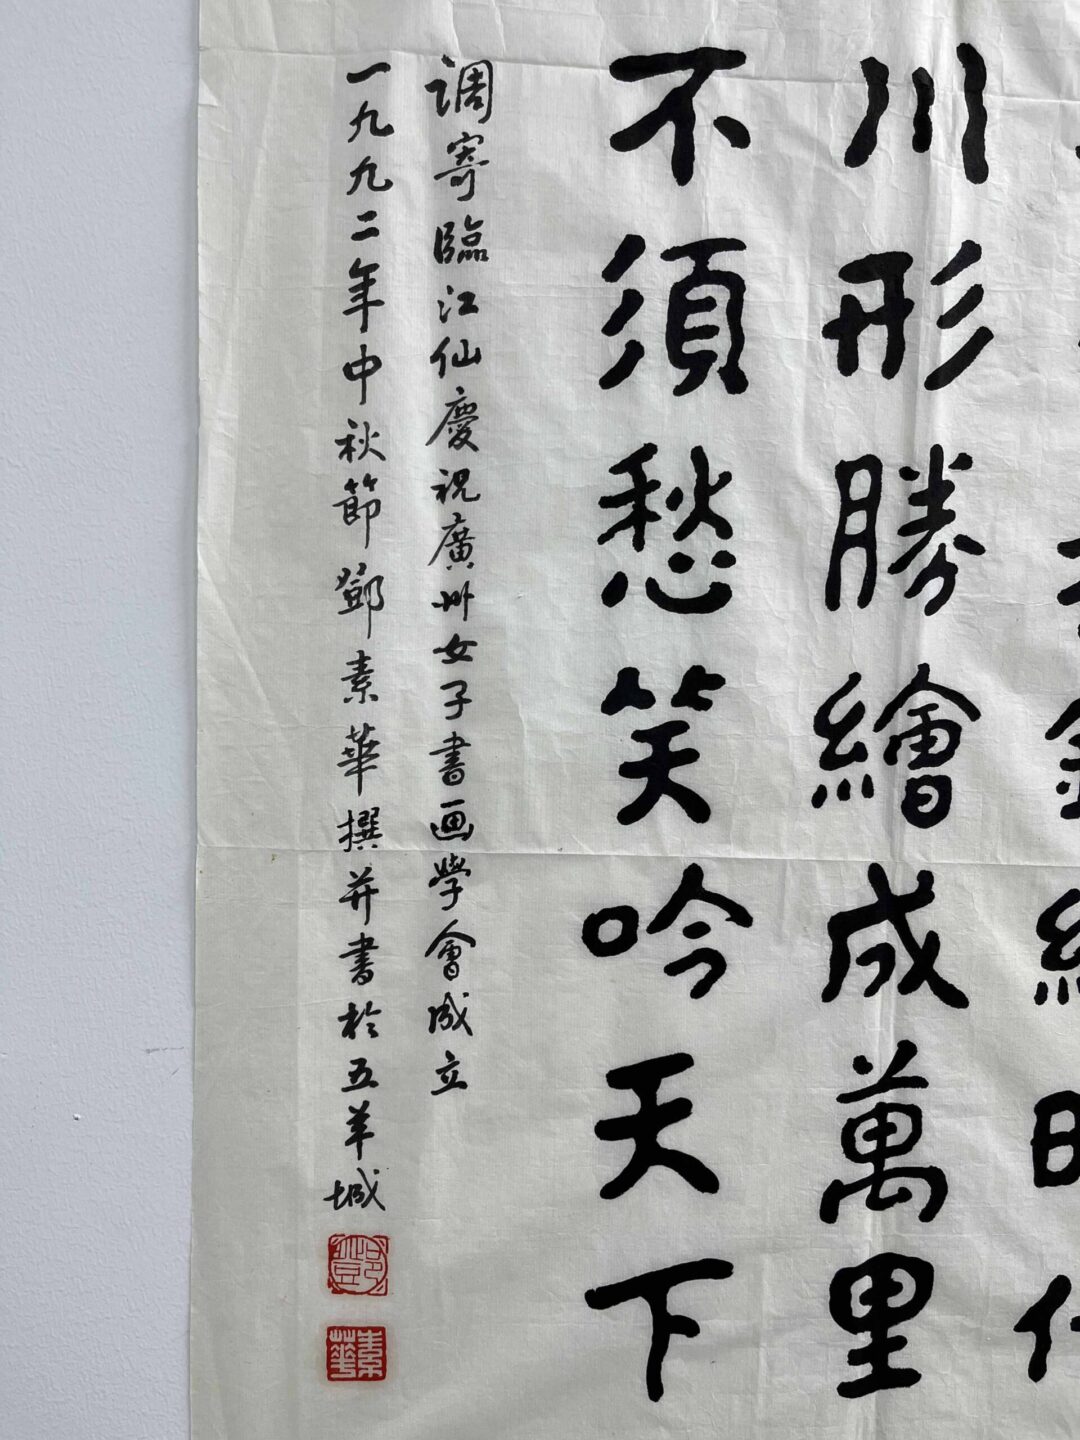 川形勝繪成萬里
不須愁笑吟天下
調寄臨江仙慶祝廣州女子書画學會成立
一九九二年中秋節鄧素華撰并書於五羊城
鄧
素華